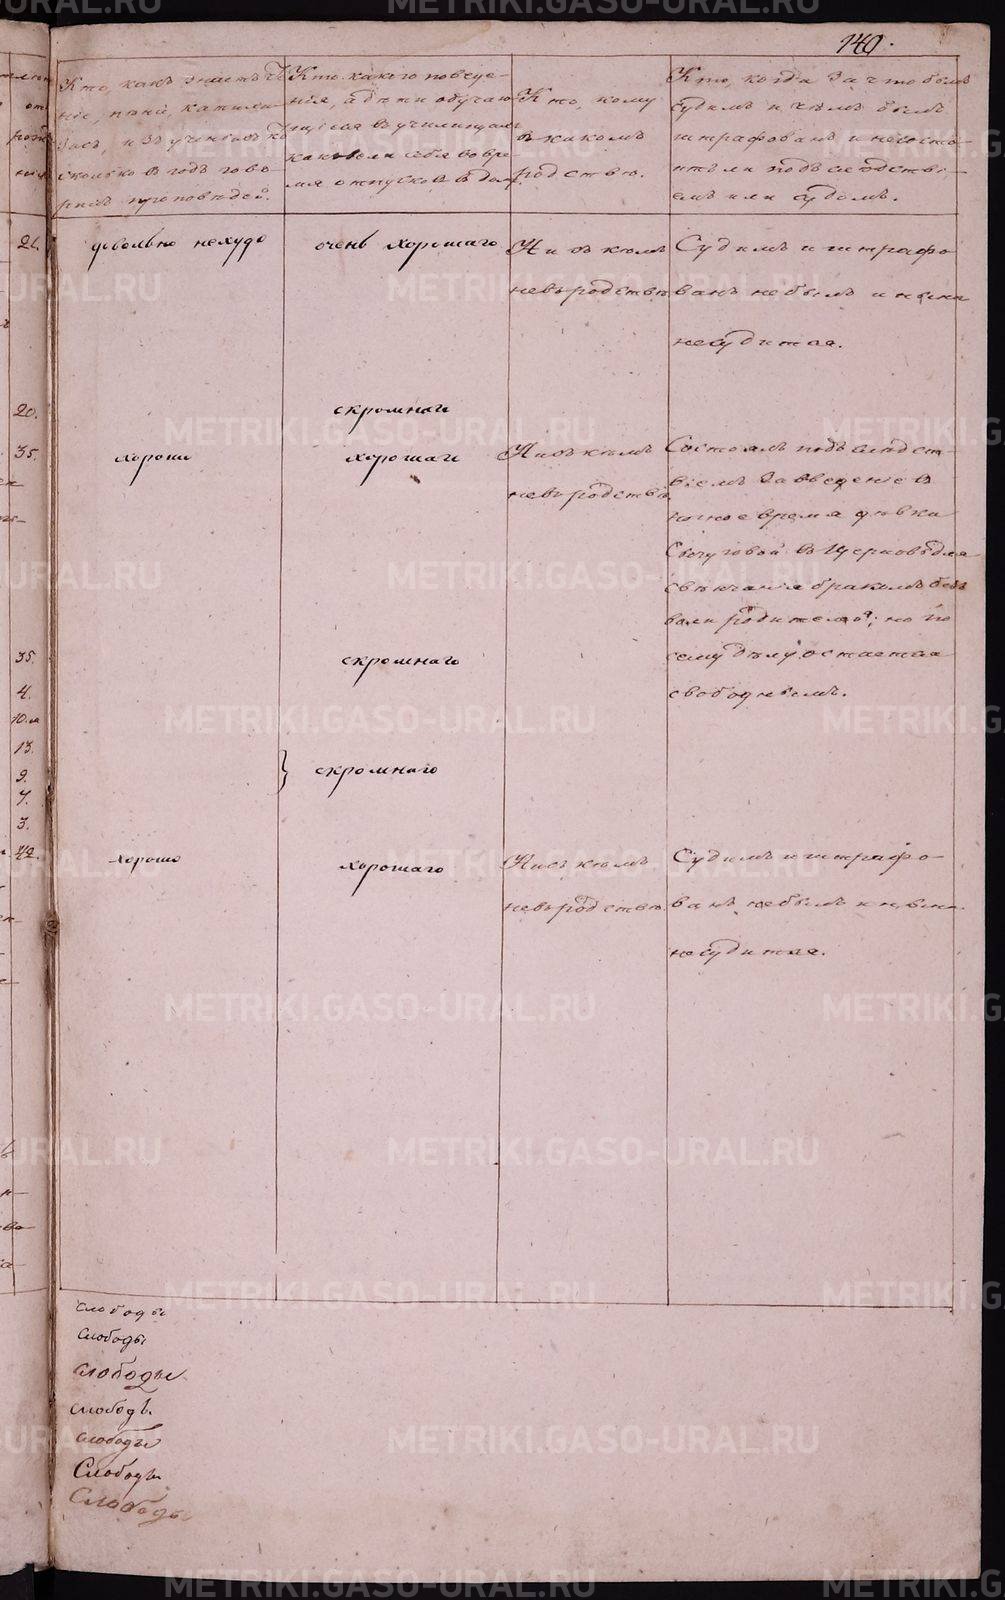 140.
Кто, какъ знаетъ Ч-
ніе, пѣніе, катихи-
зисъ, и
сколько в годъ гово-
рилъ проповѣдей.
Кто какого поведе-
нія, а дѣти обучаю-
щіеся в училищахъ
как вели себя во вре-
мя отпусков в дом.
Кто, кому
въ какомъ
родствѣ.
Кто, когда за что былъ
судимъ и чѣмъ былъ
штрафованъ и не состо-
итъ ли подъ слѣдстві-
емъ или судомъ.
21. довольно нехудо
очень хорошаго
Ни съ кѣмъ
невъ родствѣ
Судимъ и штрафо
ванъ не былъ и нынѣ
несудится.
20. скромнаго
35. хорошо
хорошаго
Ни съ кѣмъ
невъ родствѣ
Состоялъ подъ слѣдст-
віемъ за введеніе в
ночное время дѣвки
въ церковь для
свѣнчанія бракомъ безъ
воли родителей; но по
сему дѣлу остается
свободнымъ.
35. скромнаго
4.
10.м
13.
9. скромнаго
7.
3.
42. хорошо
хорошаго
Ни съ кѣмъ
невъ родствѣ
Судимъ и штрафо-
ванъ не былъ и нынѣ
несудится.
слободы
Слободы
слободы
слободы
слободы
Слободы
Слободы
METRIKI.GASO-URAL.RU